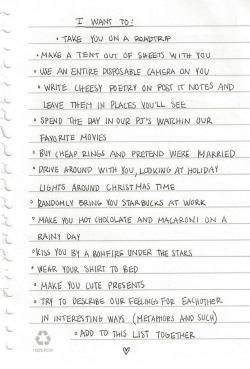 I WANT TO:
• TAKE YOU ON A ROADTRIP
• MAKE A TENT OUT OF SHEETS WITH YOU
• USE AN ENTIRE DISPOSABLE CAMERA ON YOU
• WRITE CHEESY POETRY ON POST IT NOTES AND
LEAVE THEM IN PLACES YOU'LL SEE
• SPEND THE DAY IN OUR PJ'S WATCHIN OUR
FAVORITE MOVIES
• BUY CHEAP RINGS AND PRETEND WERE MARRIED
• DRIVE AROUND WITH YOU, LOOKING AT HOLIDAY
LIGHTS AROUND CHRISTMAS TIME
• RANDOMLY BRING YOU STARBUCKS AT WORK
• MAKE YOU HOT CHOCOLATE AND MACARONI ON A
RAINY DAY
• KISS YOU BY A BONFIRE UNDER THE STARS
• WEAR YOUR SHIRT TO BED
• MAKE YOU CUTE PRESENTS
• TRY TO DESCRIBE OUR FEELINGS FOR EACHOTHER
IN INTERESTING WAYS (METAPHORS AND SUCH)
• ADD TO THIS LIST TOGETHER
♡